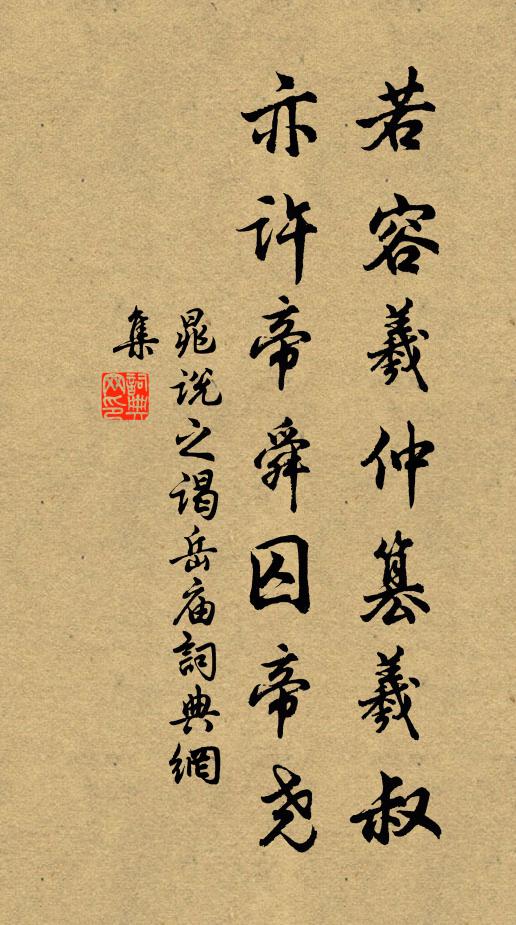 若容羲仲篡羲叔
亦许帝舜囚帝尧
晁说之谒岳庙詞典網
集
詞典網印